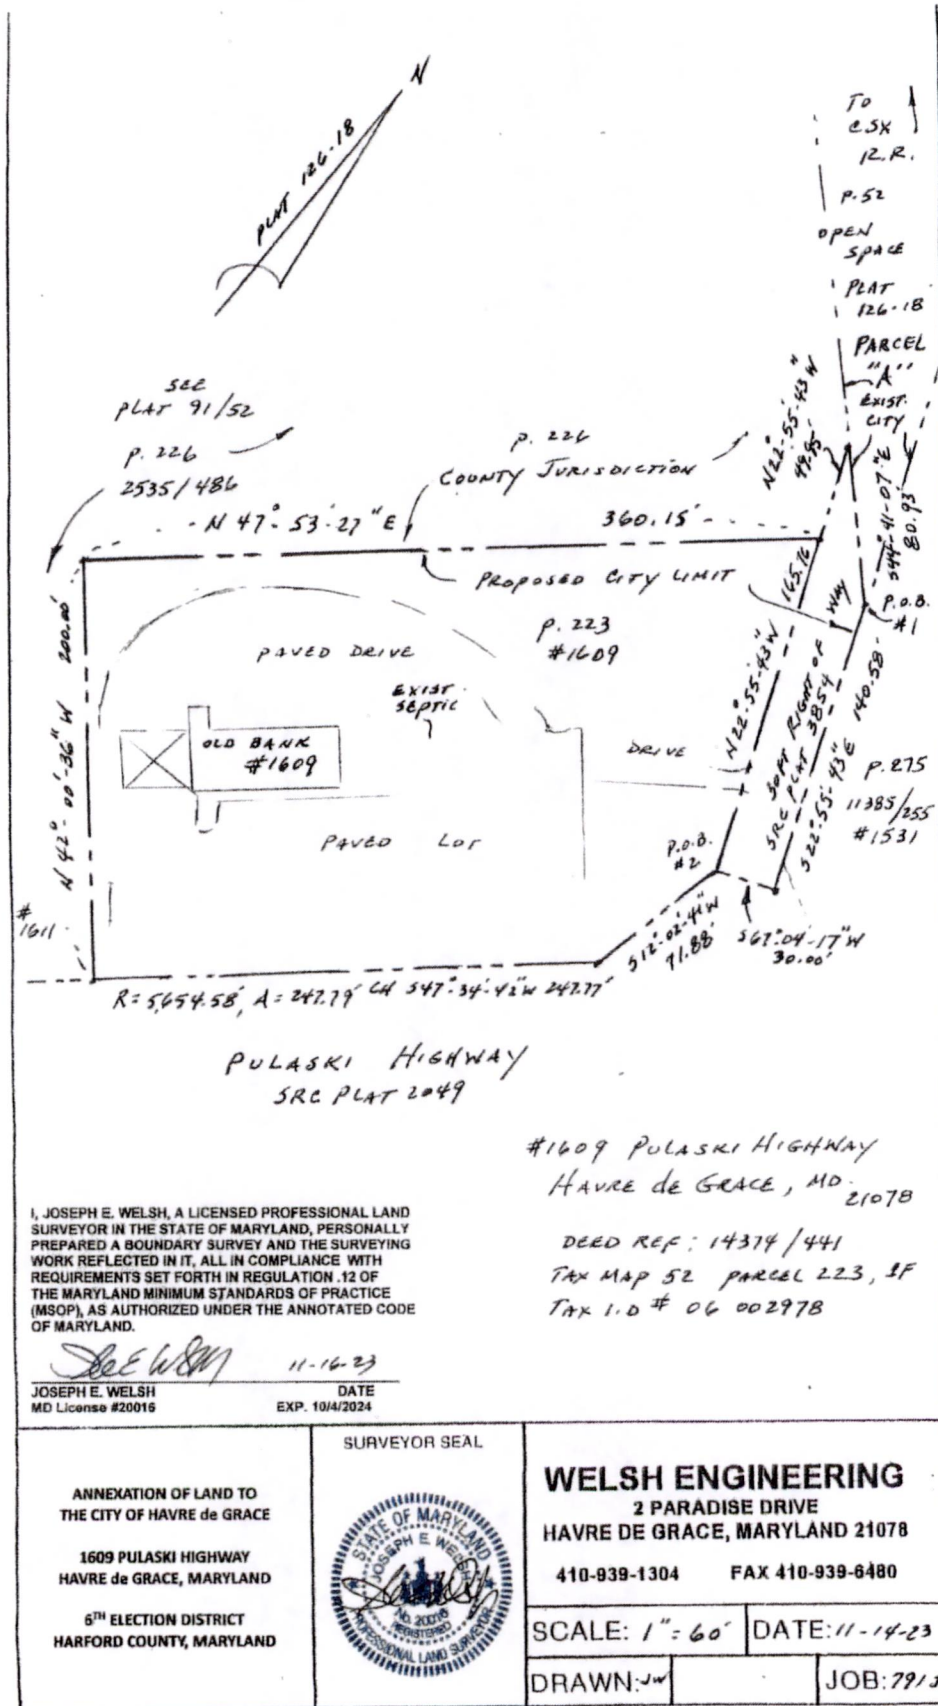 N
PLAT 126-18
TO
CSX
R.R.
P. 52
OPEN
SPACE
PLAT
126-18
PARCEL
"A"
EXIST.
CITY
SEE
PLAT 91/52
P. 226
2535/486
P. 226
COUNTY JURISDICTION
N22°-55'-43"W
49.95'
S44°-41'-07"E
80.93'
N 47°-53'-27"E 360.15'
PROPOSED CITY LIMIT
P.O.B.
#1
N 42°-00'-36" W 200.00'
PAVED DRIVE
P. 223
#1609
EXIST.
SEPTIC
OLD BANK
#1609
DRIVE
N22°-55'-43"W 165.76
50FT RIGHT OF WAY
SRC PLAT 3854
S22°-55'-43"E 140.58'
P. 275
11385/255
#1531
PAVED LOT
P.O.B.
#2
#
1611
S12°-02'-41"W
71.88'
S67°-04'-17"W
30.00'
R=5,654.58', A=247.79' CH S47°-34'-42"W 247.77'
PULASKI HIGHWAY
SRC PLAT 2049
#1609 PULASKI HIGHWAY
HAVRE de GRACE, MD.
21078
DEED REF: 14374/441
TAX MAP 52 PARCEL 223, 1F
TAX I.D # 06 002978
I, JOSEPH E. WELSH, A LICENSED PROFESSIONAL LAND
SURVEYOR IN THE STATE OF MARYLAND, PERSONALLY
PREPARED A BOUNDARY SURVEY AND THE SURVEYING
WORK REFLECTED IN IT, ALL IN COMPLIANCE WITH
REQUIREMENTS SET FORTH IN REGULATION .12 OF
THE MARYLAND MINIMUM STANDARDS OF PRACTICE
(MSOP), AS AUTHORIZED UNDER THE ANNOTATED CODE
OF MARYLAND.
11-16-23
JOSEPH E. WELSH DATE
MD License #20016 EXP. 10/4/2024
ANNEXATION OF LAND TO
THE CITY OF HAVRE de GRACE
1609 PULASKI HIGHWAY
HAVRE de GRACE, MARYLAND
6TH ELECTION DISTRICT
HARFORD COUNTY, MARYLAND
SURVEYOR SEAL
STATE OF MARYLAND
JOSEPH E. WELSH
No. 20016
REGISTERED
PROFESSIONAL LAND SURVEYOR
WELSH ENGINEERING
2 PARADISE DRIVE
HAVRE DE GRACE, MARYLAND 21078
410-939-1304 FAX 410-939-6480
SCALE: 1"=60' DATE: 11-14-23
DRAWN: JW JOB: